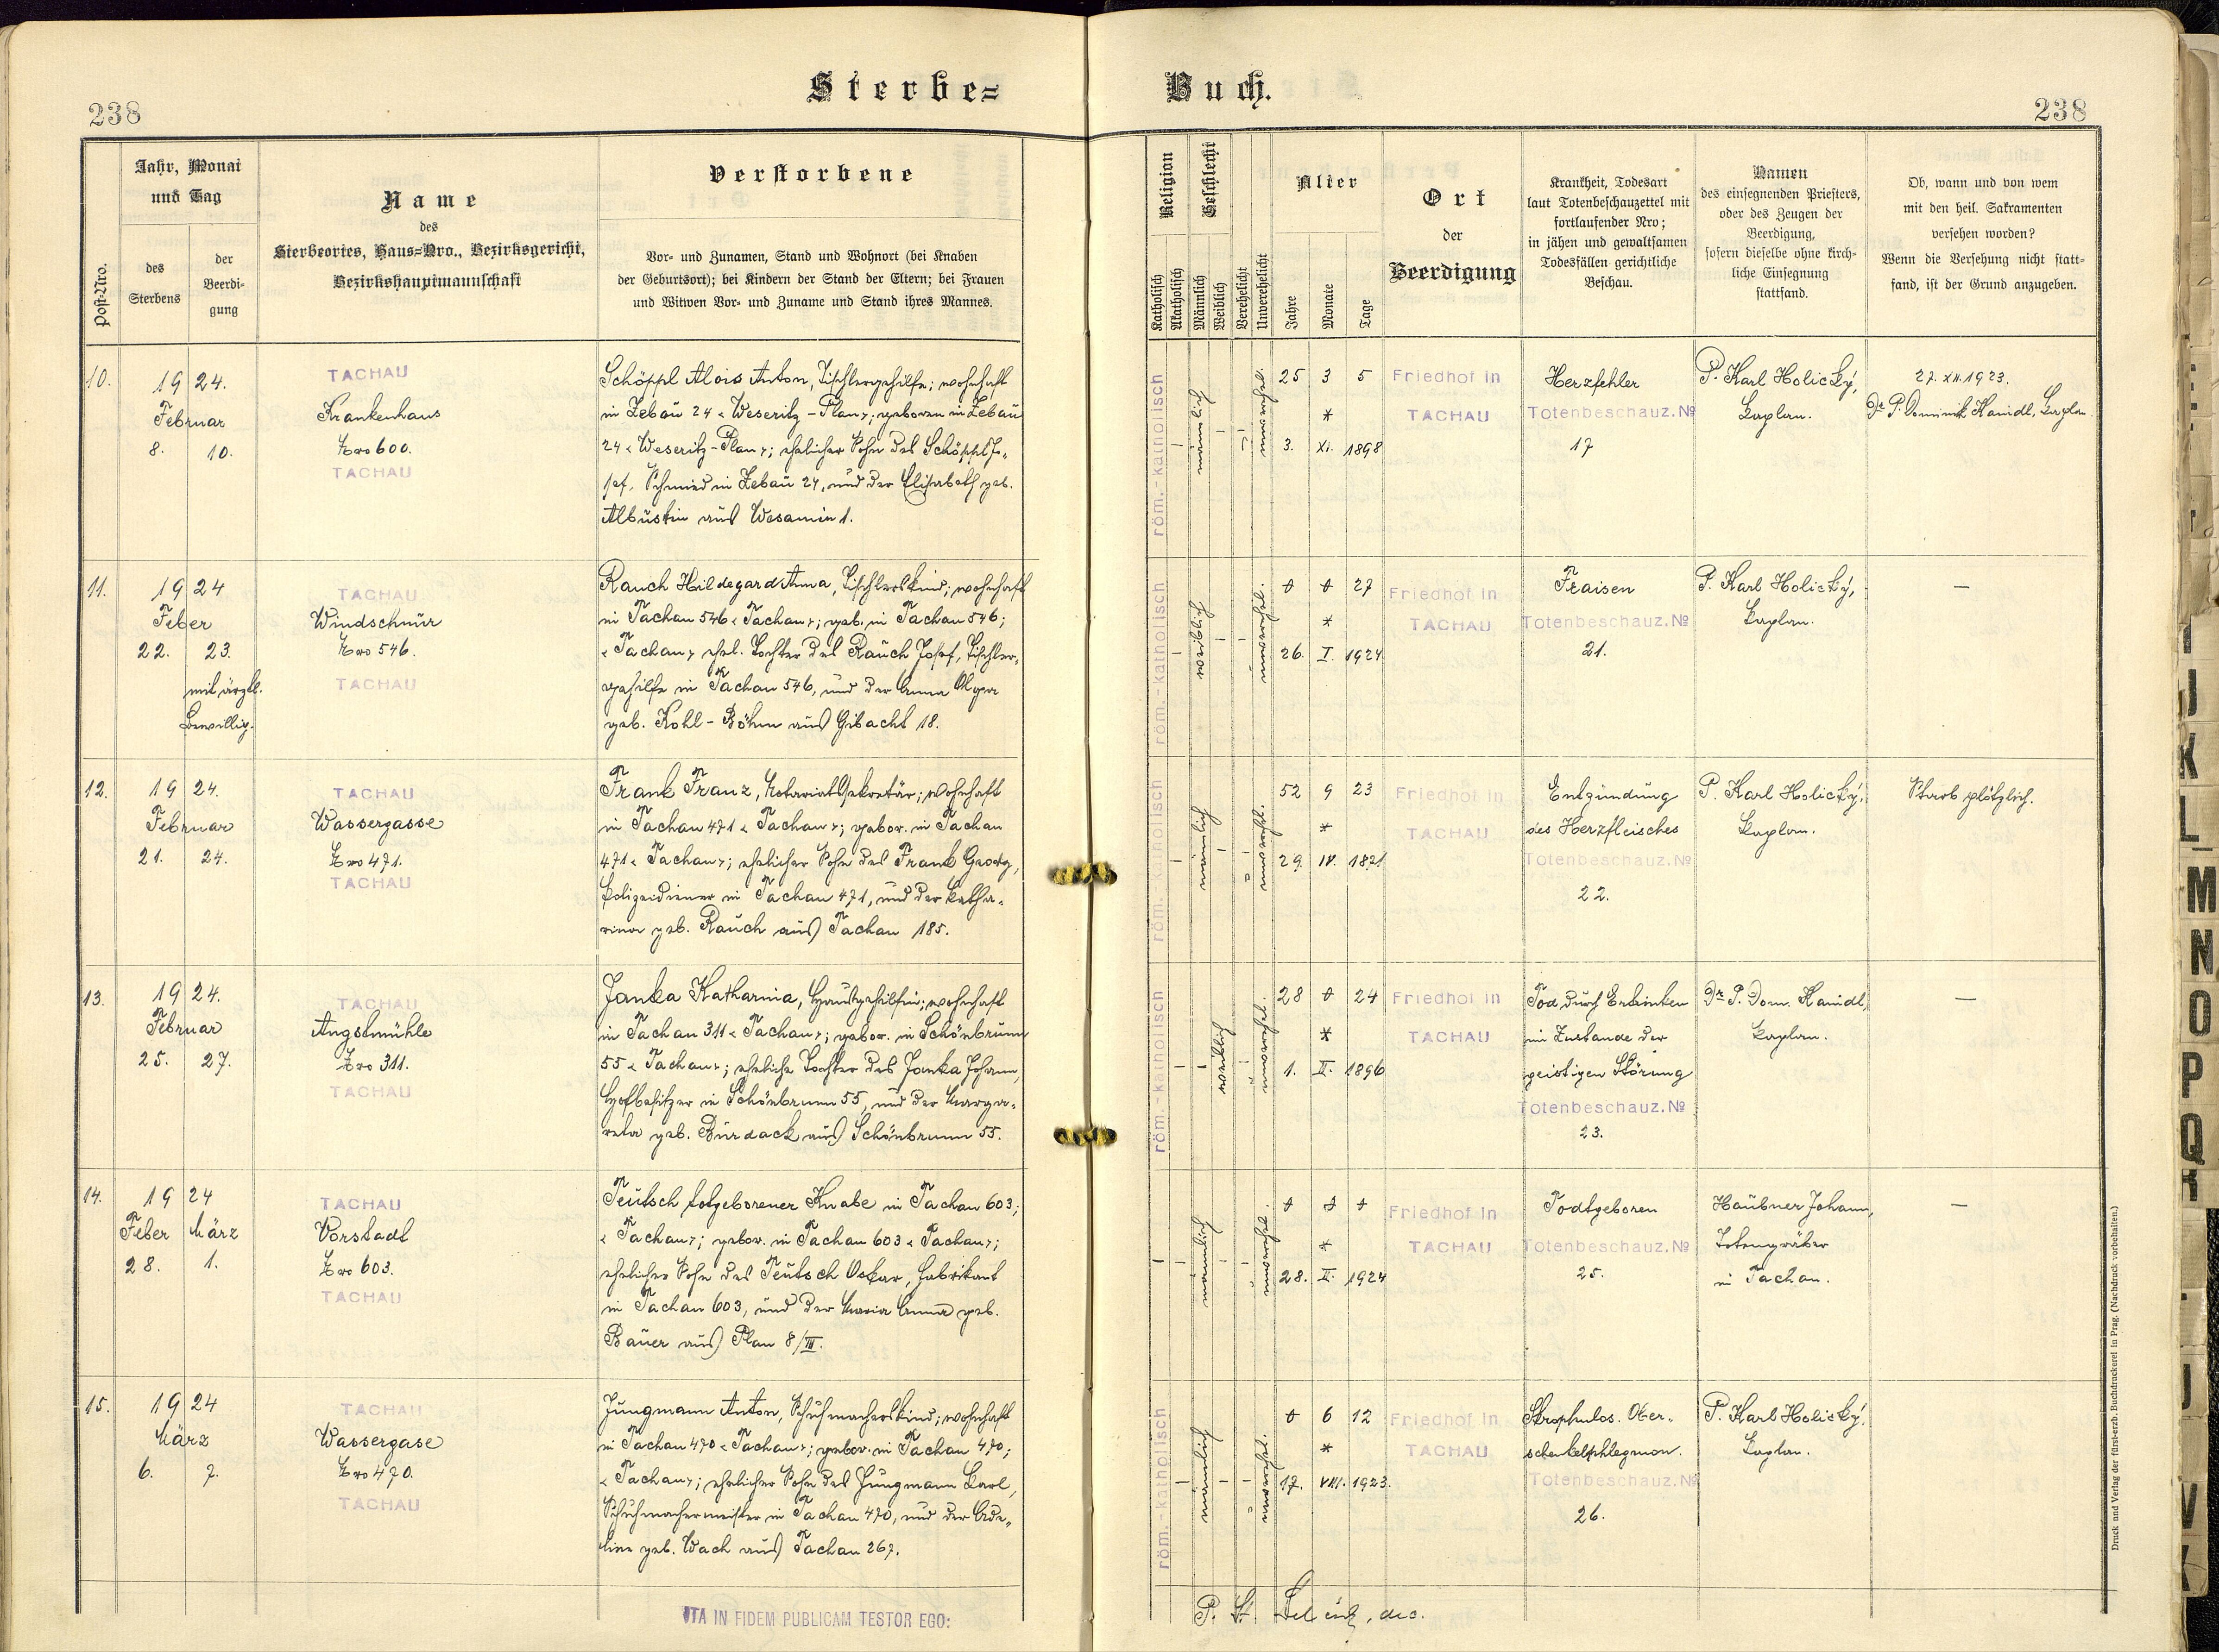 Sterbe=
Buch.
238
238
Post-Nro.
Jahr, Monat
und Tag
des
Sterbens
der
Beerdi-
gung
Name
des
Sterbeortes, Haus=Nro., Bezirksgericht,
Bezirkshauptmannschaft
Verstorbene
Vor- und Zunamen, Stand und Wohnort (bei Knaben
der Geburtsort); bei Kindern der Stand der Eltern; bei Frauen
und Witwen Vor- und Zuname und Stand ihres Mannes.
Religion
Katholisch
Akatholisch
Geschlecht
Männlich
Weiblich
Verehelicht
Unverehelicht
Alter
Jahre
Monate
Tage
Ort
der
Beerdigung
Krankheit, Todesart
laut Totenbeschauzettel mit
fortlaufender Nro;
in jähen und gewaltsamen
Todesfällen gerichtliche
Beschau.
Namen
des einsegnenden Priesters,
oder des Zeugen der
Beerdigung,
sofern dieselbe ohne kirch-
liche Einsegnung
stattfand.
Ob, wann und von wem
mit den heil. Sakramenten
versehen worden?
Wenn die Versehung nicht statt-
fand, ist der Grund anzugeben.
10.
19 24.
Februar
8. 10.
TACHAU
Krankenhaus
Nro 600.
TACHAU
Schöppl Alois Anton, Tischlergehilfe; wohnhaft
in Zebau 24 < Weseritz - Plan >; geboren in Zebau
24 < Weseritz - Plan >; ehelicher Sohn des Schöppl Jo-
sef, Schmied in Zebau 24, und der Elisabeth geb.
Albustin aus Wesamin 1.
röm.-katholisch
männlich
unverehel.
25 3 5
*
3. XI. 1898
Friedhof in
TACHAU
Herzfehler
Totenbeschauz. No
17
P. Karl Holický,
Kaplan.
27. XII. 1923.
Dr P. Dominik Kaindl, Kaplan.
11.
19 24
Feber
22. 23.
mit ärztl.
Bewillig.
TACHAU
Windschnur
Nro 546.
TACHAU
Rauch Hildegard Anna, Tischlerskind; wohnhaft
in Tachau 546 < Tachau >; geb. in Tachau 546;
< Tachau > ehel. Tochter des Rauch Josef, Tischler-
gehilfe in Tachau 546, und der Anna Olga
geb. Kohl - Böhm aus Gibacht 18.
röm.-katholisch
weiblich
unverehel.
0 0 27
*
26. I. 1924
Friedhof in
TACHAU
Fraisen
Totenbeschauz. No
21.
P. Karl Holický,
Kaplan.
—
12.
19 24.
Februar
21. 24.
TACHAU
Wassergasse
Nro 471.
TACHAU
Frank Franz, Notariatssekretär; wohnhaft
in Tachau 471 < Tachau >; gebor. in Tachau
471 < Tachau >; ehelicher Sohn des Frank Georg,
Polizeidiener in Tachau 471, und der Katha-
rina geb. Rauch aus Tachau 185.
röm.-katholisch
männlich
unverehl.
52 9 23
*
29. IV. 1871
Friedhof in
TACHAU
Entzündung
des Herzfleisches
Totenbeschauz. No
22.
P. Karl Holický,
Kaplan.
Starb plötzlich.
13.
19 24.
Februar
25. 27.
TACHAU
Angstmühle
Nro 311.
TACHAU
Janka Katharina, Hausgehilfin; wohnhaft
in Tachau 311 < Tachau >; gebor. in Schönbrunn
55 < Tachau >; eheliche Tochter des Janka Johann,
Hofbesitzer in Schönbrunn 55, und der Marga-
reta geb. Burdack aus Schönbrunn 55.
röm.-katholisch
weiblich
unverehel.
28 0 24
*
1. II. 1896
Friedhof in
TACHAU
Tod durch Ertrinken
im Zustande der
geistigen Störung
Totenbeschauz. No
23.
Dr P. Dom. Kaindl,
Kaplan.
—
14.
19 24
Feber März
28. 1.
TACHAU
Vorstadt
Nro 603.
TACHAU
Teutsch totgeborener Knabe in Tachau 603;
< Tachau >; gebor. in Tachau 603 < Tachau >;
ehelicher Sohn des Teutsch Oskar, Fabrikant
in Tachau 603, und der Maria Anna geb.
Bauer aus Plan 8/III.
männlich
unverehel.
0 0 0
*
28. II. 1924
Friedhof in
TACHAU
Todtgeboren
Totenbeschauz. No
25.
Haubner Johann,
Totengräber
in Tachau.
—
15.
19 24
März
6. 7.
TACHAU
Wassergase
Nro 470.
TACHAU
Jungmann Anton, Schuhmacherskind; wohnhaft
in Tachau 470 < Tachau >; gebor. in Tachau 470;
< Tachau >; ehelicher Sohn des Jungmann Karl,
Schuhmachermeister in Tachau 470, und der Ade-
line geb. Wach aus Tachau 267.
röm.-katholisch
männlich
unverehel.
0 6 12
*
17. VIII. 1923.
Friedhof in
TACHAU
Skrophulos. Ober-
schenkelphlegmon.
Totenbeschauz. No
26.
P. Karl Holický,
Kaplan.
ITA IN FIDEM PUBLICAM TESTOR EGO:
Druck und Verlag der fürst-erzb. Buchdruckerei in Prag. (Nachdruck vorbehalten.)
I
J
K
L
M
N
O
P
Q
R
V